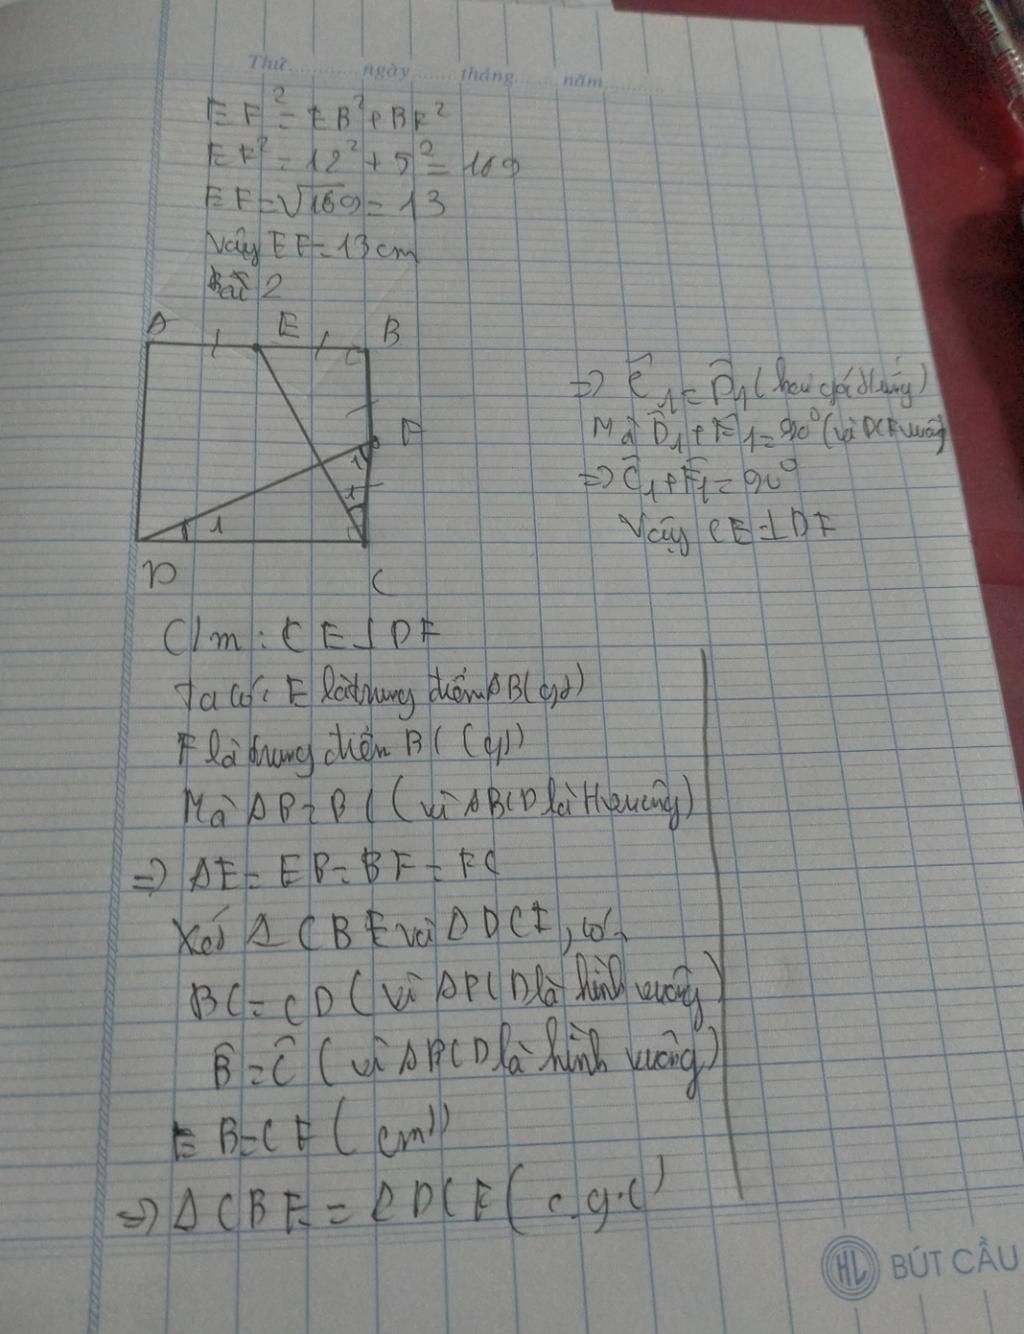 Thứ ngày tháng năm
EF² = EB² + BF²
EF² = 12² + 5² = 169
EF = √169 = 13
Vậy EF = 13 cm
Bài 2
A E B
F
1
1
1
D C
C/m: CE ⊥ DF
Ta có: E là trung điểm AB (gt)
F là trung điểm BC (gt)
Mà AB = BC (vì ABCD là H vuông)
=> AE = EB = BF = FC
Xét Δ CBE và Δ DCF, có:
BC = CD (vì ABCD là hình vuông)
B̂ = Ĉ (vì ABCD là hình vuông)
EB = CF (cmt)
=> Δ CBE = Δ DCF (c.g.c)
=> Ĉ₁ = D̂₁ (hai góc tương ứng)
Mà D̂₁ + F̂₁ = 90° (vì DCF vuông)
=> Ĉ₁ + F̂₁ = 90°
Vậy CE ⊥ DF
HL BÚT CẦU